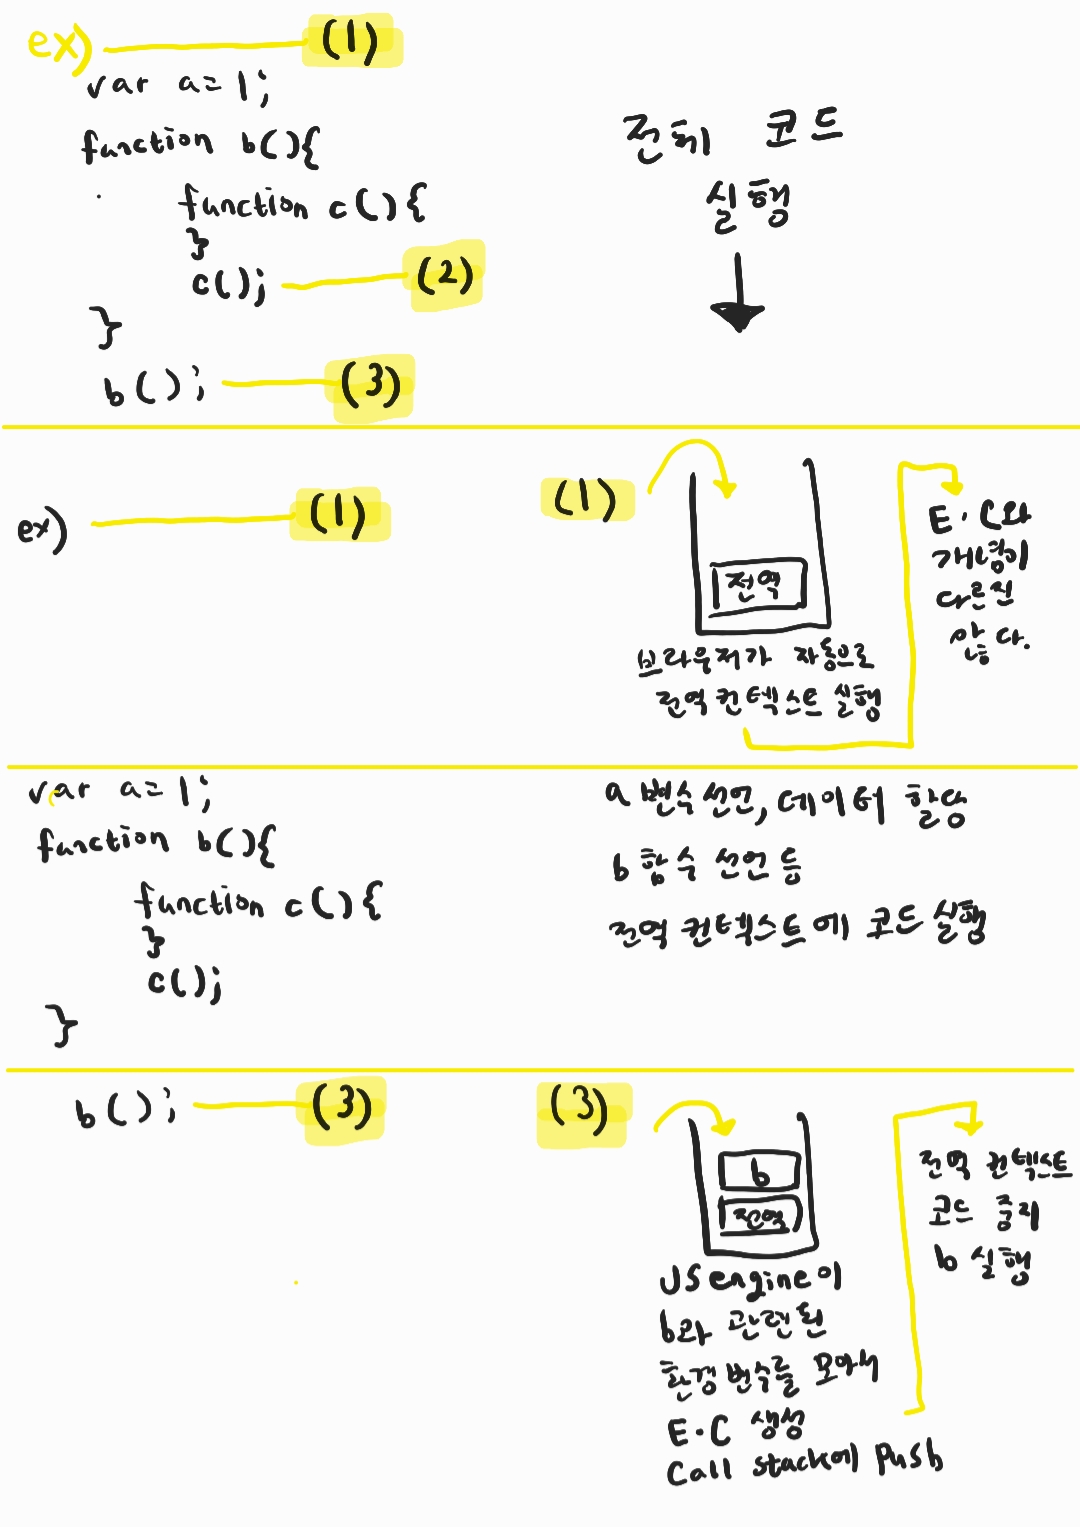 ex) (1)
var a=1;
function b(){
function c(){
}
c(); (2)
}
b(); (3)
전체 코드
실행
ex) (1)
(1)
전역
브라우저가 자동으로
전역 컨텍스트 실행
E·C와
개념이
다르진
않다.
var a=1;
function b(){
function c(){
}
c();
}
a 변수 선언, 데이터 할당
b 함수 선언 등
전역 컨텍스트에 코드 실행
b(); (3)
(3)
b
전역
JS engine이
b와 관련된
환경 변수를 모아서
E·C 생성
Call stack에 Push
전역 컨텍스트
코드 중지
b 실행